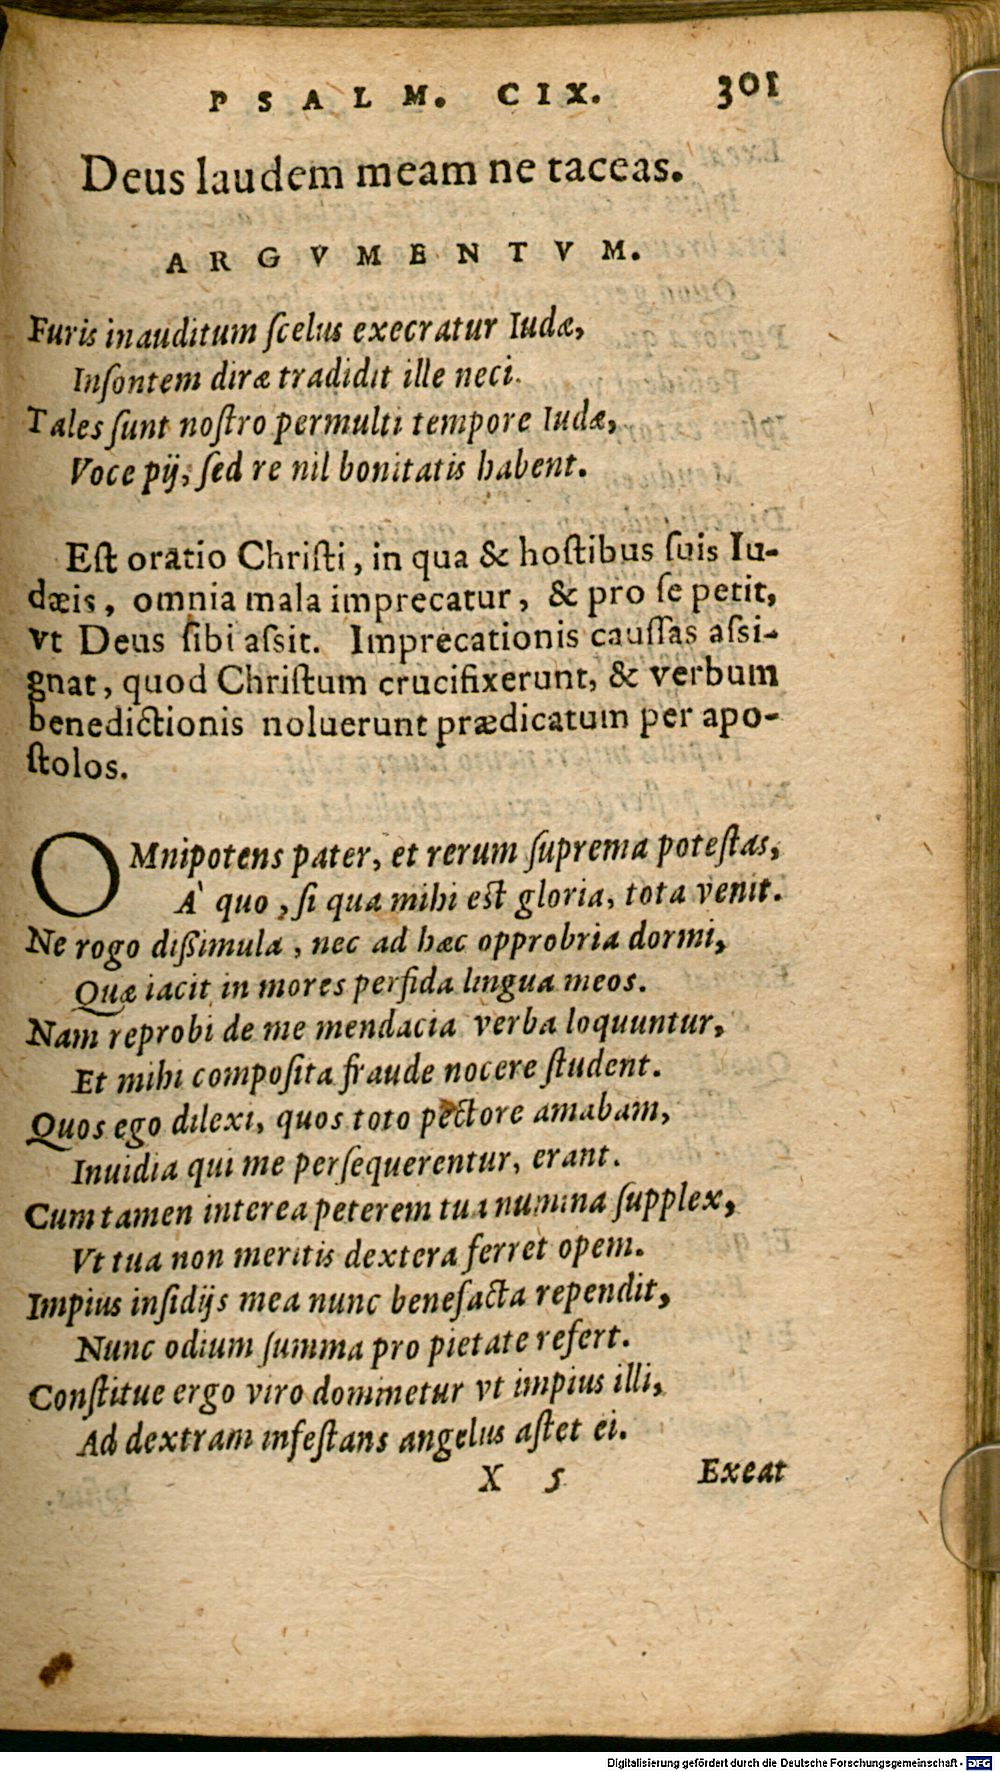 PSALM. CIX. 301
Deus laudem meam ne taceas.
ARGVMENTVM.
Furis inauditum ſcelus execratur Iudæ,
Inſontem diræ tradidit ille neci.
Tales ſunt noſtro permulti tempore Iudæ,
Voce pij, ſed re nil bonitatis habent.
Eſt oratio Chriſti, in qua & hoſtibus ſuis Iu-
dæis, omnia mala imprecatur, & pro ſe petit,
vt Deus ſibi aſsit. Imprecationis cauſſas aſsi-
gnat, quod Chriſtum crucifixerunt, & verbum
benedictionis noluerunt prædicatum per apo-
ſtolos.
OMnipotens pater, et rerum ſuprema poteſtas,
A` quo, ſi qua mihi eſt gloria, tota venit.
Ne rogo dißimula, nec ad hæc opprobria dormi,
Quæ iacit in mores perfida lingua meos.
Nam reprobi de me mendacia verba loquuntur,
Et mihi compoſita fraude nocere ſtudent.
Quos ego dilexi, quos toto pectore amabam,
Inuidia qui me perſequerentur, erant.
Cum tamen interea peterem tua numina ſupplex,
Vt tua non meritis dextera ferret opem.
Impius inſidijs mea nunc benefacta rependit,
Nunc odium ſumma pro pietate refert.
Conſtitue ergo viro dominetur vt impius illi,
Ad dextram infeſtans angelus aſtet ei.
X 5 Exeat
Digitalisierung gefördert durch die Deutsche Forschungsgemeinschaft - DFG